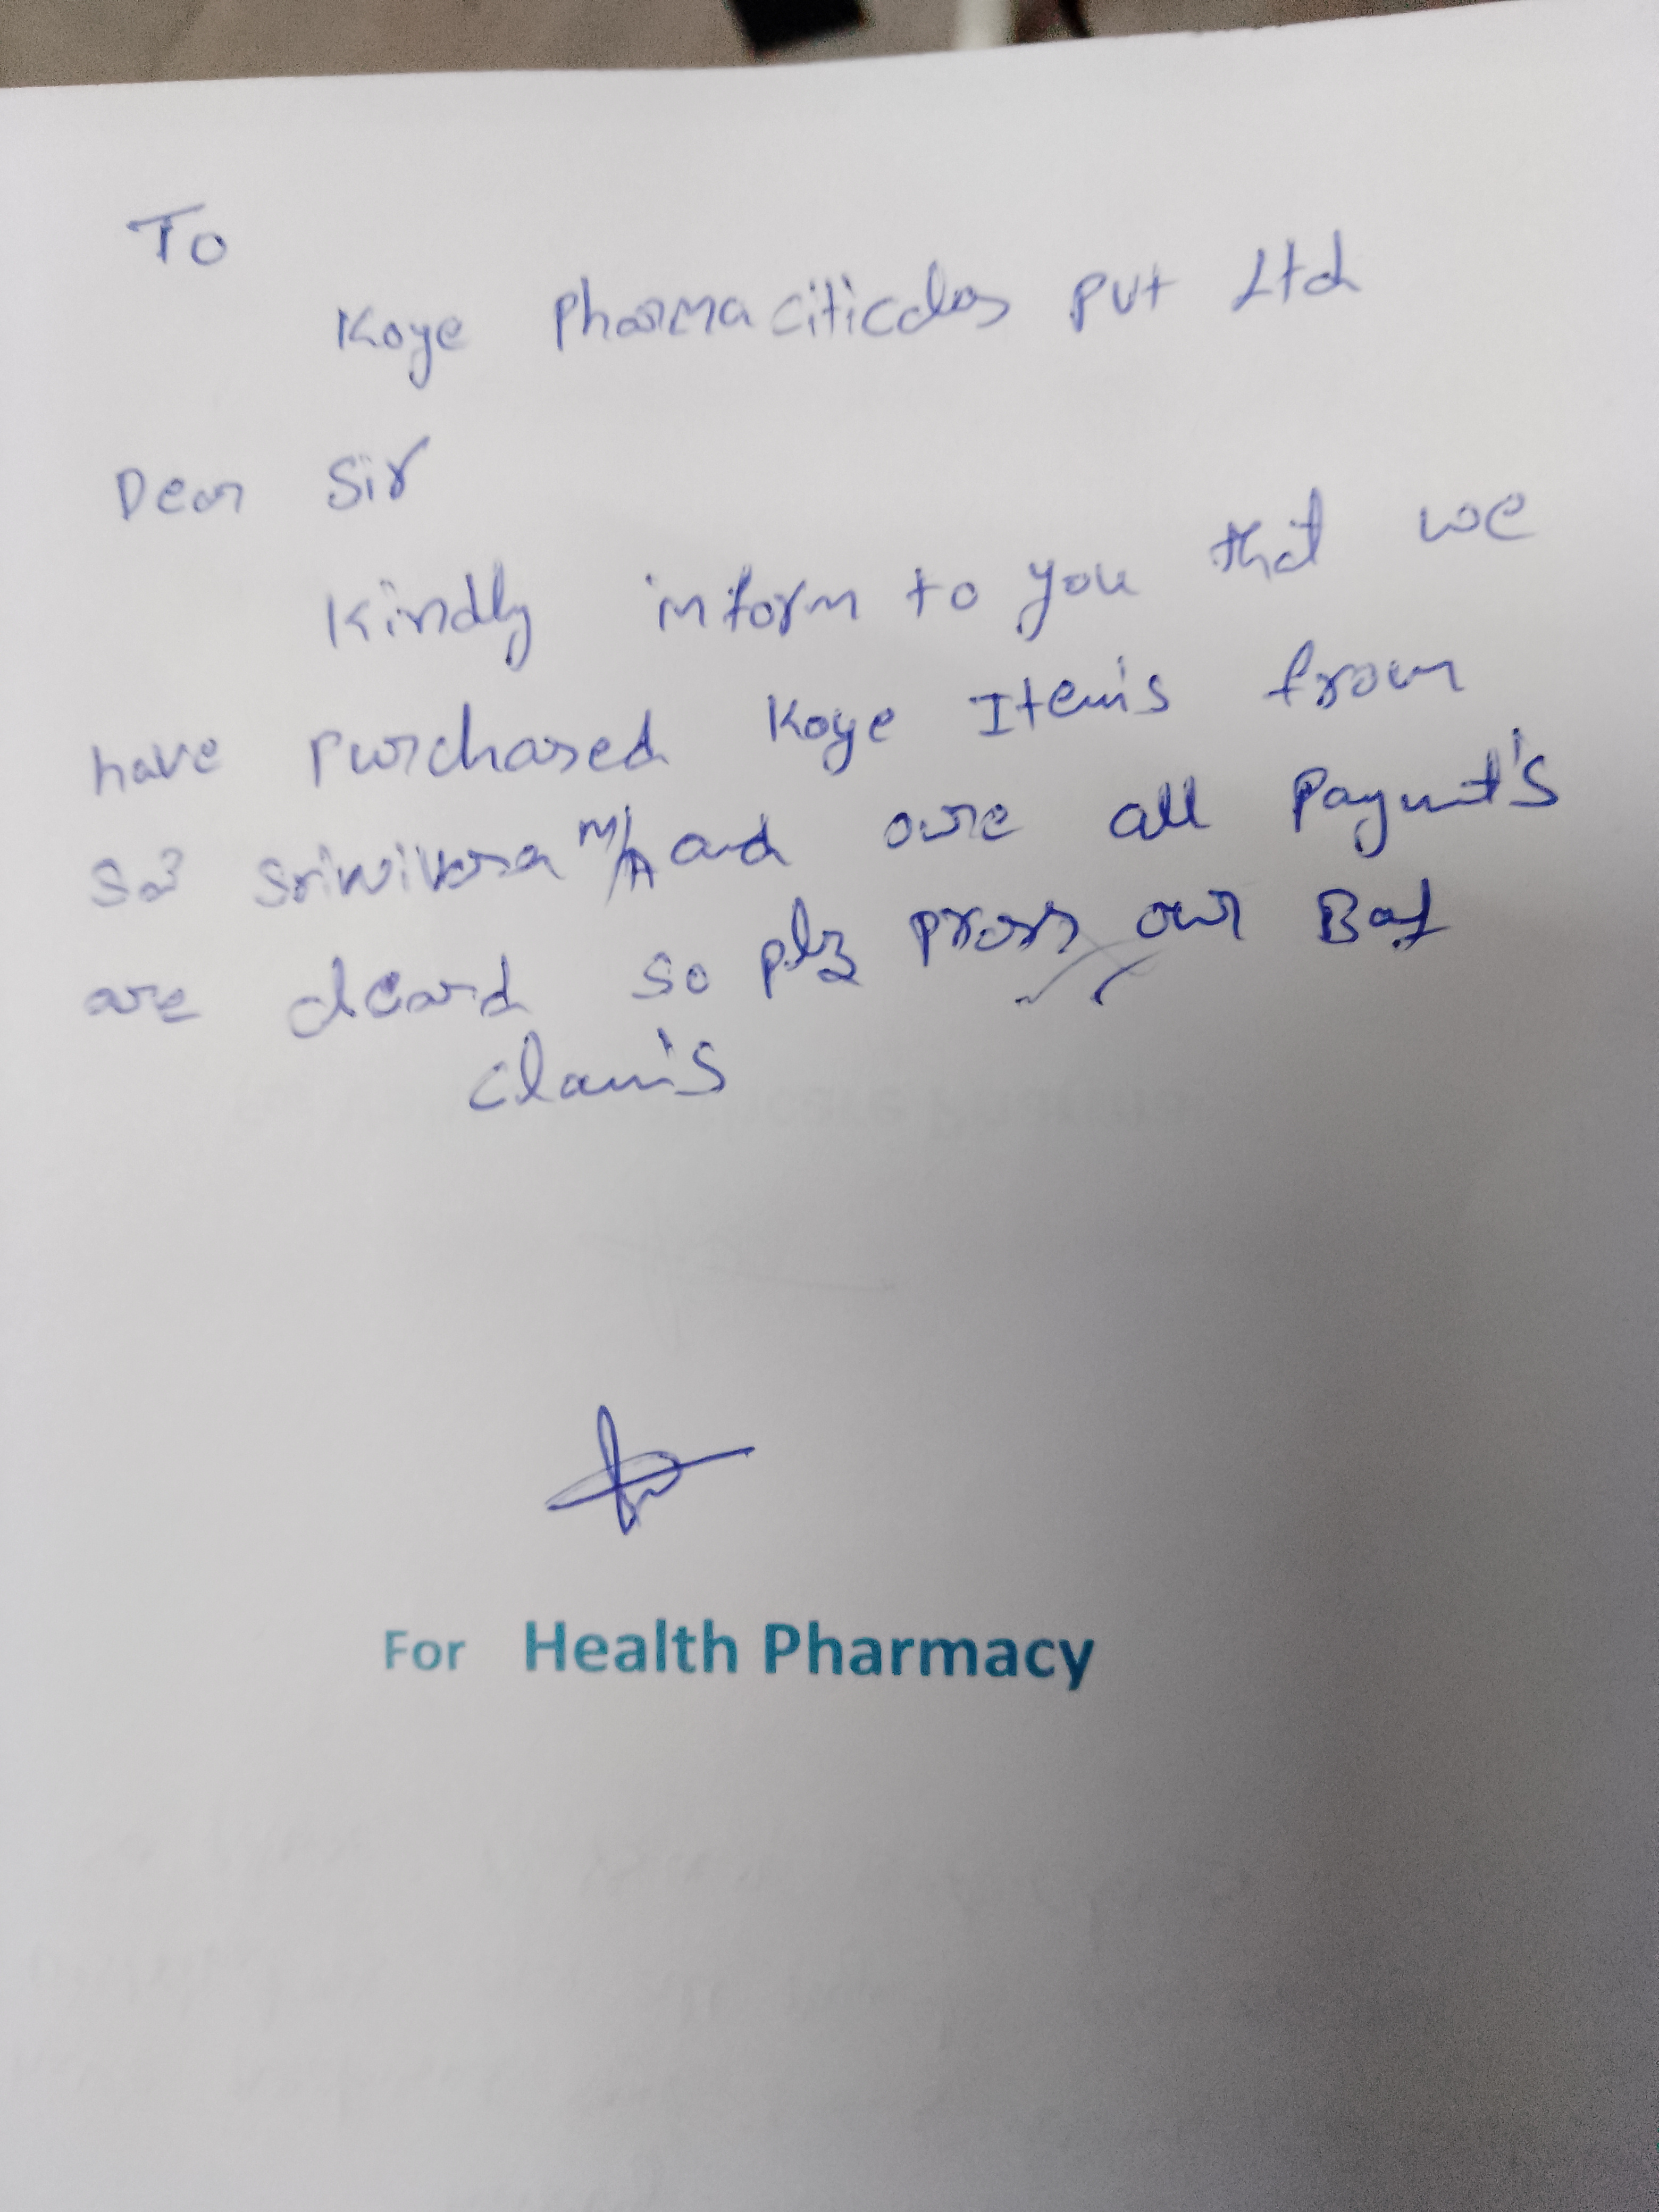 To
Koye Pharmaciticales Pvt Ltd
Dear Sir
Kindly inform to you that we
have purchased Koye Item's from
Sri Srinivasa M/A and oure all Paymt's
are cleard so plz pross our
Claim's
For Health Pharmacy